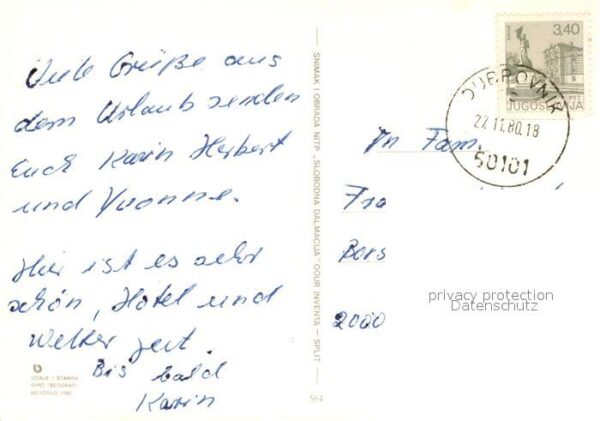 Viele Grüße aus
dem Urlaub senden
Euch Karin Herbert
und Yvonne.
Hier ist es sehr
schön, Hotel und
Wetter gut.
Bis bald
Karin
IZDAJE I ŠTAMPA
BEOGRAD, 1980
SNIMAK I OBRADA NITP „SLOBODNA DALMACIJA" OOUR INVENTA – SPLIT
564
3,40
JUGOSLAVIJA
DUBROVNIK
27.11.80.18
50101
Fam.
Fra
Bors
2000
privacy protection
Datenschutz